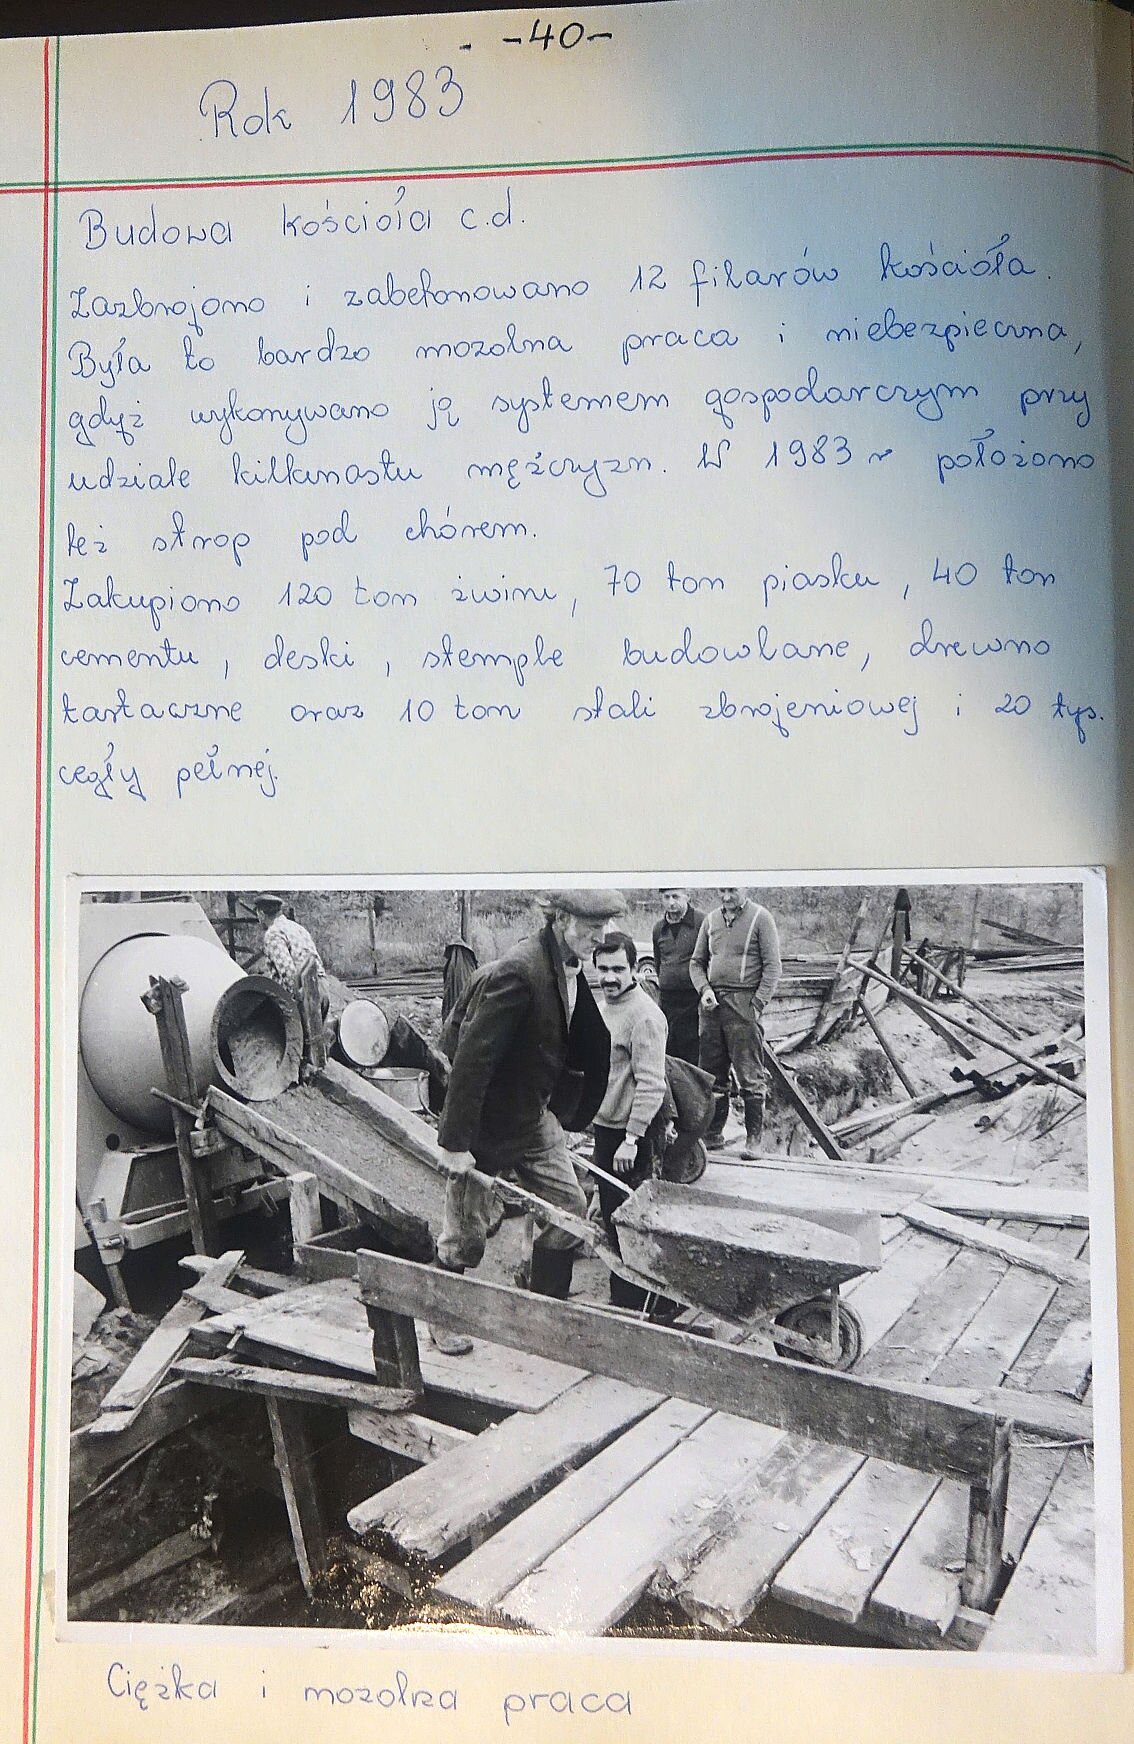 -40-
Rok 1983
Budowa kościoła c.d.
Zazbrojono i zabetonowano 12 filarów kościoła.
Była to bardzo mozolna praca i niebezpieczna,
gdyż wykonywano ją systemem gospodarczym przy
udziale kilkunastu mężczyzn. W 1983 r położono
też strop pod chórem.
Zakupiono 120 ton żwiru, 70 ton piasku, 40 ton
cementu, deski, stemple budowlane, drewno
tartaczne oraz 10 ton stali zbrojeniowej i 20 tys.
cegły pełnej.
Ciężka i mozolna praca